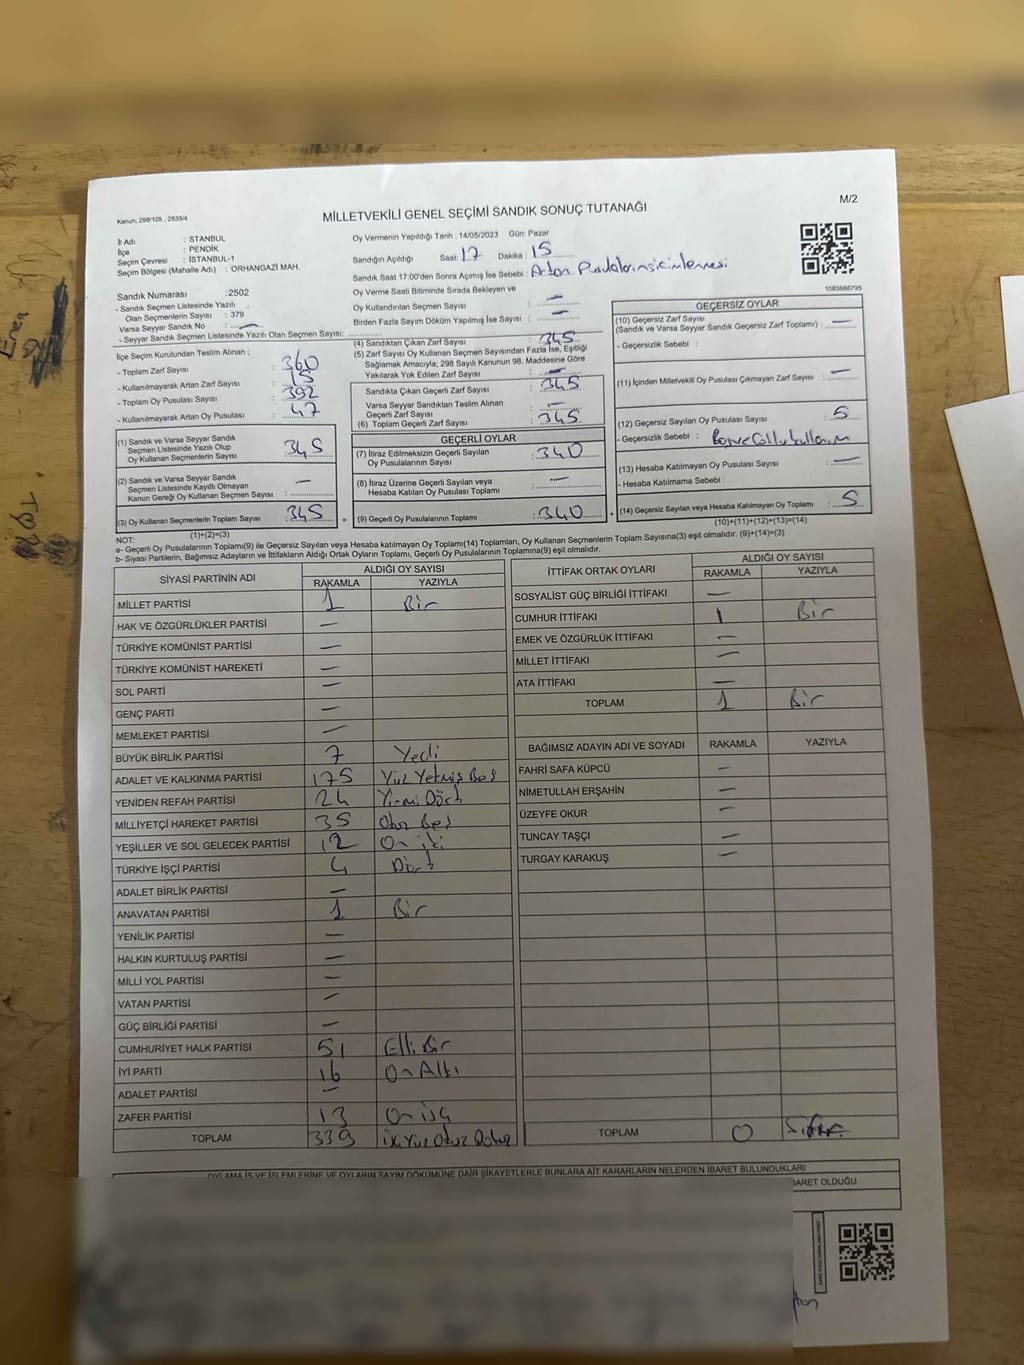 M/2
Kanun: 298/105 , 2839/4
MİLLETVEKİLİ GENEL SEÇİMİ SANDIK SONUÇ TUTANAĞI
İl Adı : STANBUL
İlçe : PENDİK
Seçim Çevresi : İSTANBUL-1
Seçim Bölgesi (Mahalle Adı) : ORHANGAZİ MAH.
Oy Vermenin Yapıldığı Tarih : 14/05/2023 Gün: Pazar
Sandığın Açıldığı Saat: 17 Dakika : 15
Sandık Saat 17:00'den Sonra Açımış İse Sebebi : Artan Pusulaların
Oy Verme Saati Bitiminde Sırada Bekleyen ve
Oy Kullandırılan Seçmen Sayısı : —
Birden Fazla Sayım Döküm Yapılmış İse Sayısı : —
1083686795
Sandık Numarası :2502
- Sandık Seçmen Listesinde Yazılı
Olan Seçmenlerin Sayısı : 379
Varsa Seyyar Sandık No : —
- Seyyar Sandık Seçmen Listesinde Yazılı Olan Seçmen Sayısı:
İlçe Seçim Kurulundan Teslim Alınan ;
- Toplam Zarf Sayısı : 360
- Kullanılmayarak Artan Zarf Sayısı : 15
- Toplam Oy Pusulası Sayısı : 392
- Kullanılmayarak Artan Oy Pusulası : 47
(1) Sandık ve Varsa Seyyar Sandık
Seçmen Listesinde Yazılı Olup
Oy Kullanan Seçmenlerin Sayısı : 345
(2) Sandık ve Varsa Seyyar Sandık
Seçmen Listesinde Kayıtlı Olmayan
Kanun Gereği Oy Kullanan Seçmen Sayısı : —
(3) Oy Kullanan Seçmenlerin Toplam Sayısı : 345
(1)+(2)=(3)
(4) Sandıktan Çıkan Zarf Sayısı : 345
(5) Zarf Sayısı Oy Kullanan Seçmen Sayısından Fazla İse, Eşitliği
Sağlamak Amacıyla; 298 Sayılı Kanunun 98. Maddesine Göre
Yakılarak Yok Edilen Zarf Sayısı : —
Sandıkta Çıkan Geçerli Zarf Sayısı : 345
Varsa Seyyar Sandıktan Teslim Alınan
Geçerli Zarf Sayısı : —
(6) Toplam Geçerli Zarf Sayısı : 345
GEÇERLİ OYLAR
(7) İtiraz Edilmeksizin Geçerli Sayılan
Oy Pusulalarının Sayısı : 340
(8) İtiraz Üzerine Geçerli Sayılan veya
Hesaba Katılan Oy Pusulası Toplamı : —
= (9) Geçerli Oy Pusulalarının Toplamı : 340
GEÇERSİZ OYLAR
(10) Geçersiz Zarf Sayısı
(Sandık ve Varsa Seyyar Sandık Geçersiz Zarf Toplamı) : —
- Geçersizlik Sebebi :
(11) İçinden Milletvekili Oy Pusulası Çıkmayan Zarf Sayısı : —
(12) Geçersiz Sayılan Oy Pusulası Sayısı : 5
- Geçersizlik Sebebi :
(13) Hesaba Katılmayan Oy Pusulası Sayısı : —
- Hesaba Katılmama Sebebi :
+ (14) Geçersiz Sayılan veya Hesaba Katılmayan Oy Toplamı : 5
(10)+(11)+(12)+(13)=(14)
NOT:
a- Geçerli Oy Pusulalarının Toplamı(9) ile Geçersiz Sayılan veya Hesaba katılmayan Oy Toplamı(14) Toplamları, Oy Kullanan Seçmenlerin Toplam Sayısına(3) eşit olmalıdır. (9)+(14)=(3)
b- Siyasi Partilerin, Bağımsız Adayların ve İttifakların Aldığı Ortak Oyların Toplamı, Geçerli Oy Pusulalarının Toplamına(9) eşit olmalıdır.
SİYASİ PARTİNİN ADI ALDIĞI OY SAYISI
RAKAMLA YAZIYLA
MİLLET PARTİSİ 1 Bir
HAK VE ÖZGÜRLÜKLER PARTİSİ —
TÜRKİYE KOMÜNİST PARTİSİ —
TÜRKİYE KOMÜNİST HAREKETİ —
SOL PARTİ —
GENÇ PARTİ —
MEMLEKET PARTİSİ —
BÜYÜK BİRLİK PARTİSİ 7 Yedi
ADALET VE KALKINMA PARTİSİ 175 Yüz Yetmiş Beş
YENİDEN REFAH PARTİSİ 24 Yirmi Dört
MİLLİYETÇİ HAREKET PARTİSİ 35 Otuz Beş
YEŞİLLER VE SOL GELECEK PARTİSİ 12 On iki
TÜRKİYE İŞÇİ PARTİSİ 4 Dört
ADALET BİRLİK PARTİSİ —
ANAVATAN PARTİSİ 1 Bir
YENİLİK PARTİSİ —
HALKIN KURTULUŞ PARTİSİ —
MİLLİ YOL PARTİSİ —
VATAN PARTİSİ —
GÜÇ BİRLİĞİ PARTİSİ —
CUMHURİYET HALK PARTİSİ 51 Elli Bir
İYİ PARTİ 16 On Altı
ADALET PARTİSİ —
ZAFER PARTİSİ 13 On üç
TOPLAM 339 iki Yüz Otuz Dokuz
İTTİFAK ORTAK OYLARI ALDIĞI OY SAYISI
RAKAMLA YAZIYLA
SOSYALİST GÜÇ BİRLİĞİ İTTİFAKI —
CUMHUR İTTİFAKI 1 Bir
EMEK VE ÖZGÜRLÜK İTTİFAKI —
MİLLET İTTİFAKI —
ATA İTTİFAKI —
TOPLAM 1 Bir
BAĞIMSIZ ADAYIN ADI VE SOYADI RAKAMLA YAZIYLA
FAHRİ SAFA KÜPCÜ —
NİMETULLAH ERŞAHİN —
ÜZEYFE OKUR —
TUNCAY TAŞÇI —
TURGAY KARAKUŞ —
TOPLAM 0 Sıfır
OYLAMA İŞ VE İŞLEMLERİNE VE OYLARIN SAYIM DÖKÜMÜNE DAİR ŞİKAYETLERLE BUNLARA AİT KARARLARIN NELERDEN İBARET BULUNDUKLARI
BARET OLDUĞU